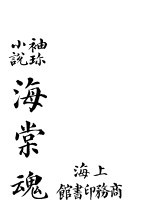 袖珍
小說
海棠魂
上海
商務印書館